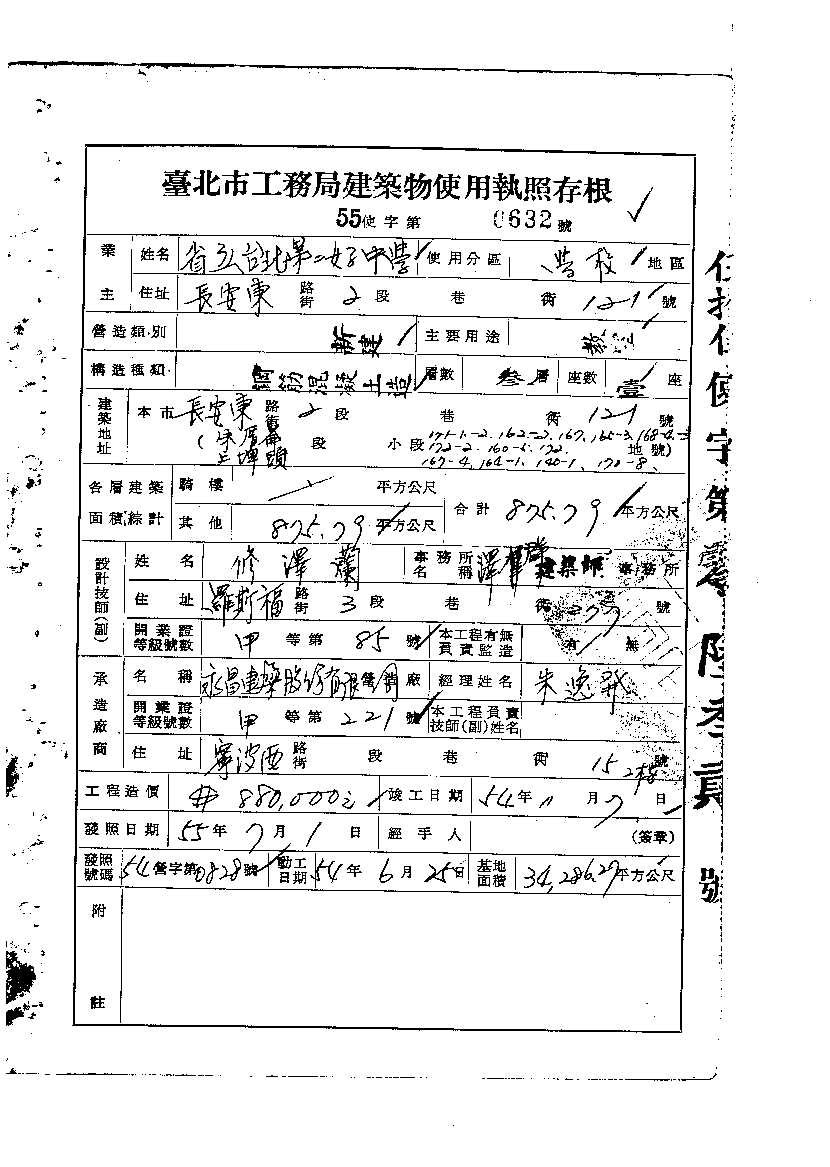 臺北市工務局建築物使用執照存根
55使字第 0632 號
業主 姓名 省立台北第二女子中學 使用分區 學校 地區
住址 長安東 路街 2 段 巷 衖 121 號
營造類別 新建 主要用途 教室
構造種類 鋼筋混凝土造 層數 叁層 座數 壹 座
建築地址 本市 長安東 路街 2 段 巷 衖 121 號
段 小段 171-1-2, 162-2, 167, 165-3, 168-4-3
172-2, 160-5, 172, 地號)
167-4, 164-1, 140-1, 170-8
各層建築面積綜計 騎樓 平方公尺
其他 875.79 平方公尺 合計 875.79 平方公尺
設計技師(副) 姓名 修澤蘭 事務所名稱 澤群建築師 事務所
住址 羅斯福 路街 3 段 巷 衖 277 號
開業證等級號數 甲 等第 85 號 本工程有無負責監造 有 無
承造廠商 名稱 永昌建築股份有限 營造廠 經理姓名 朱逸
開業證等級號數 甲 等第 221 號 本工程負責技師(副)姓名
住址 寧波西 路街 段 巷 衖 15 號
2樓
工程造價 880,000 竣工日期 54年 11 月 7 日
發照日期 55年 7 月 1 日 經手人 (簽章)
發照號碼 54營字第0828號 動工日期 54年 6 月 25日 基地面積 34,286.27平方公尺
附註
使字第零陸叁貳號